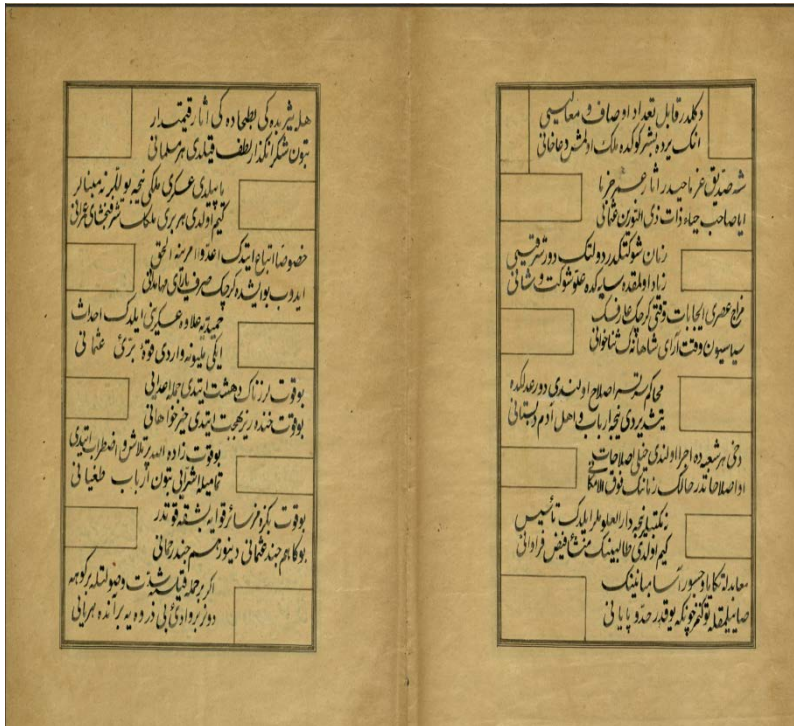 دكلدر قابل تعداد اوصاف و معالیسی
انك یرده بشر كوكده ملك اولمش دعاخانی
شه صدیق عزما حیدر اثار عمر حزما
ایا صاحب حیاء ذات ذی النورین عثمانی
زمان شوكتكدر دولتك دور
زیاد اولمقده سایه كده علو شوكت و شانی
مزاج عصری ایجابات وقتی كرچك عارفسك
سیاسیون وقت آرای شاهانه ك ثناخوانی
محاكم سربسر اصلاح اولندی دور عدلكده
یتشدیردی نیجه ارباب و اهل آدم دبستانی
دخی هر شعبه ده اجرا اولندی خیلی اصلاحات
او اصلاحاتدر حالك زمانك فوق الامكانی
نه مكتبلر نیجه دار العلوملر ایلدك تأسیس
كیم اولدی طالبینك منشأ فیض فراوانی
معابد تكایا و جسور آسا مبانینك
صاییلمقله توكنمز چونكه یوقدر حد و پایانی
هله یثربده كی بطحاده كی اثار قیمتدار
بتون شكرانكذار لطف قیلدی هر مسلمانی
یاپیلدی عسكری ملكی نیجه یوللر نه مبنالر
كیم اولدی هر بری ملكك شرفبخشای عمرانی
خصوصا اتباع ایتدك اعدوا امرینه الحق
ایدوب بو ایشده كرچك صرف یارای
حمیدیه علاوه عسكرینی ایلدك احداث
ایكی ملیونه واردی قوهٔ بریٔ عثمانی
بو قوت لرزناك دهشت ایتدی جمله اعدایی
بو قوت خنده ریز بهجت ایتدی خیرخواهانی
بو قوت زاده الله پر تلاش و اضطراب ایتدی
تمامیله اشراری بتون ارباب طغیانی
بو قوت بكزه مز سائر قوایه بشقه قوتدر
بوكا هم جند عثمانی دینور هم جند رحمانی
اكر بر حمله قیلسه شدت و صولتله بر كوهه
دوزر بر وادیٔ بی ذروه یه برانده هر یانی